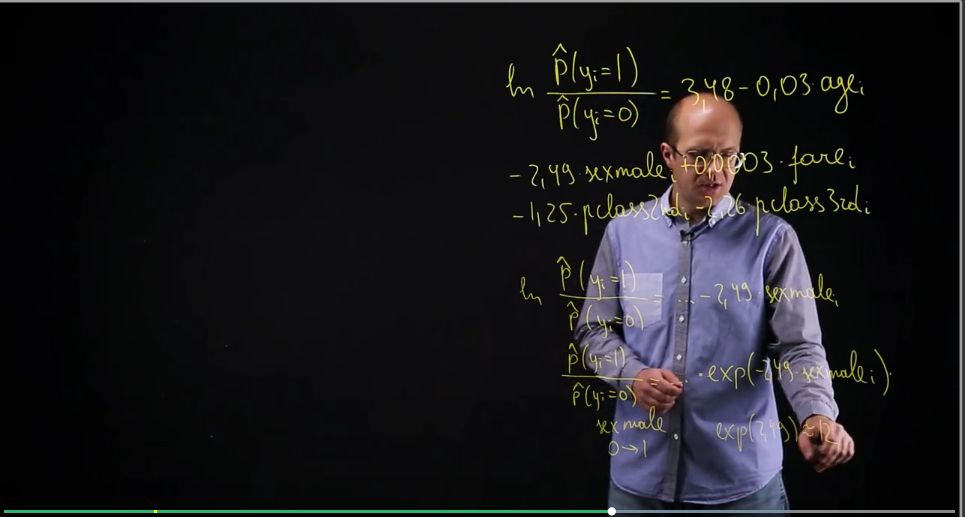 ln P̂(yᵢ=1) / P̂(yᵢ=0) = 3,48 - 0,03·ageᵢ
-2,49·sexmaleᵢ +0,0003·fareᵢ
-1,25·pclass2ndᵢ -2,26 pclass3rdᵢ
ln P̂(yᵢ=1) / P̂(yᵢ=0) = ... -2,49·sexmaleᵢ
P̂(yᵢ=1) / P̂(yᵢ=0) = ...·exp(-2,49·sexmaleᵢ)·
sexmale exp(2,49) ≈ 12
0→1